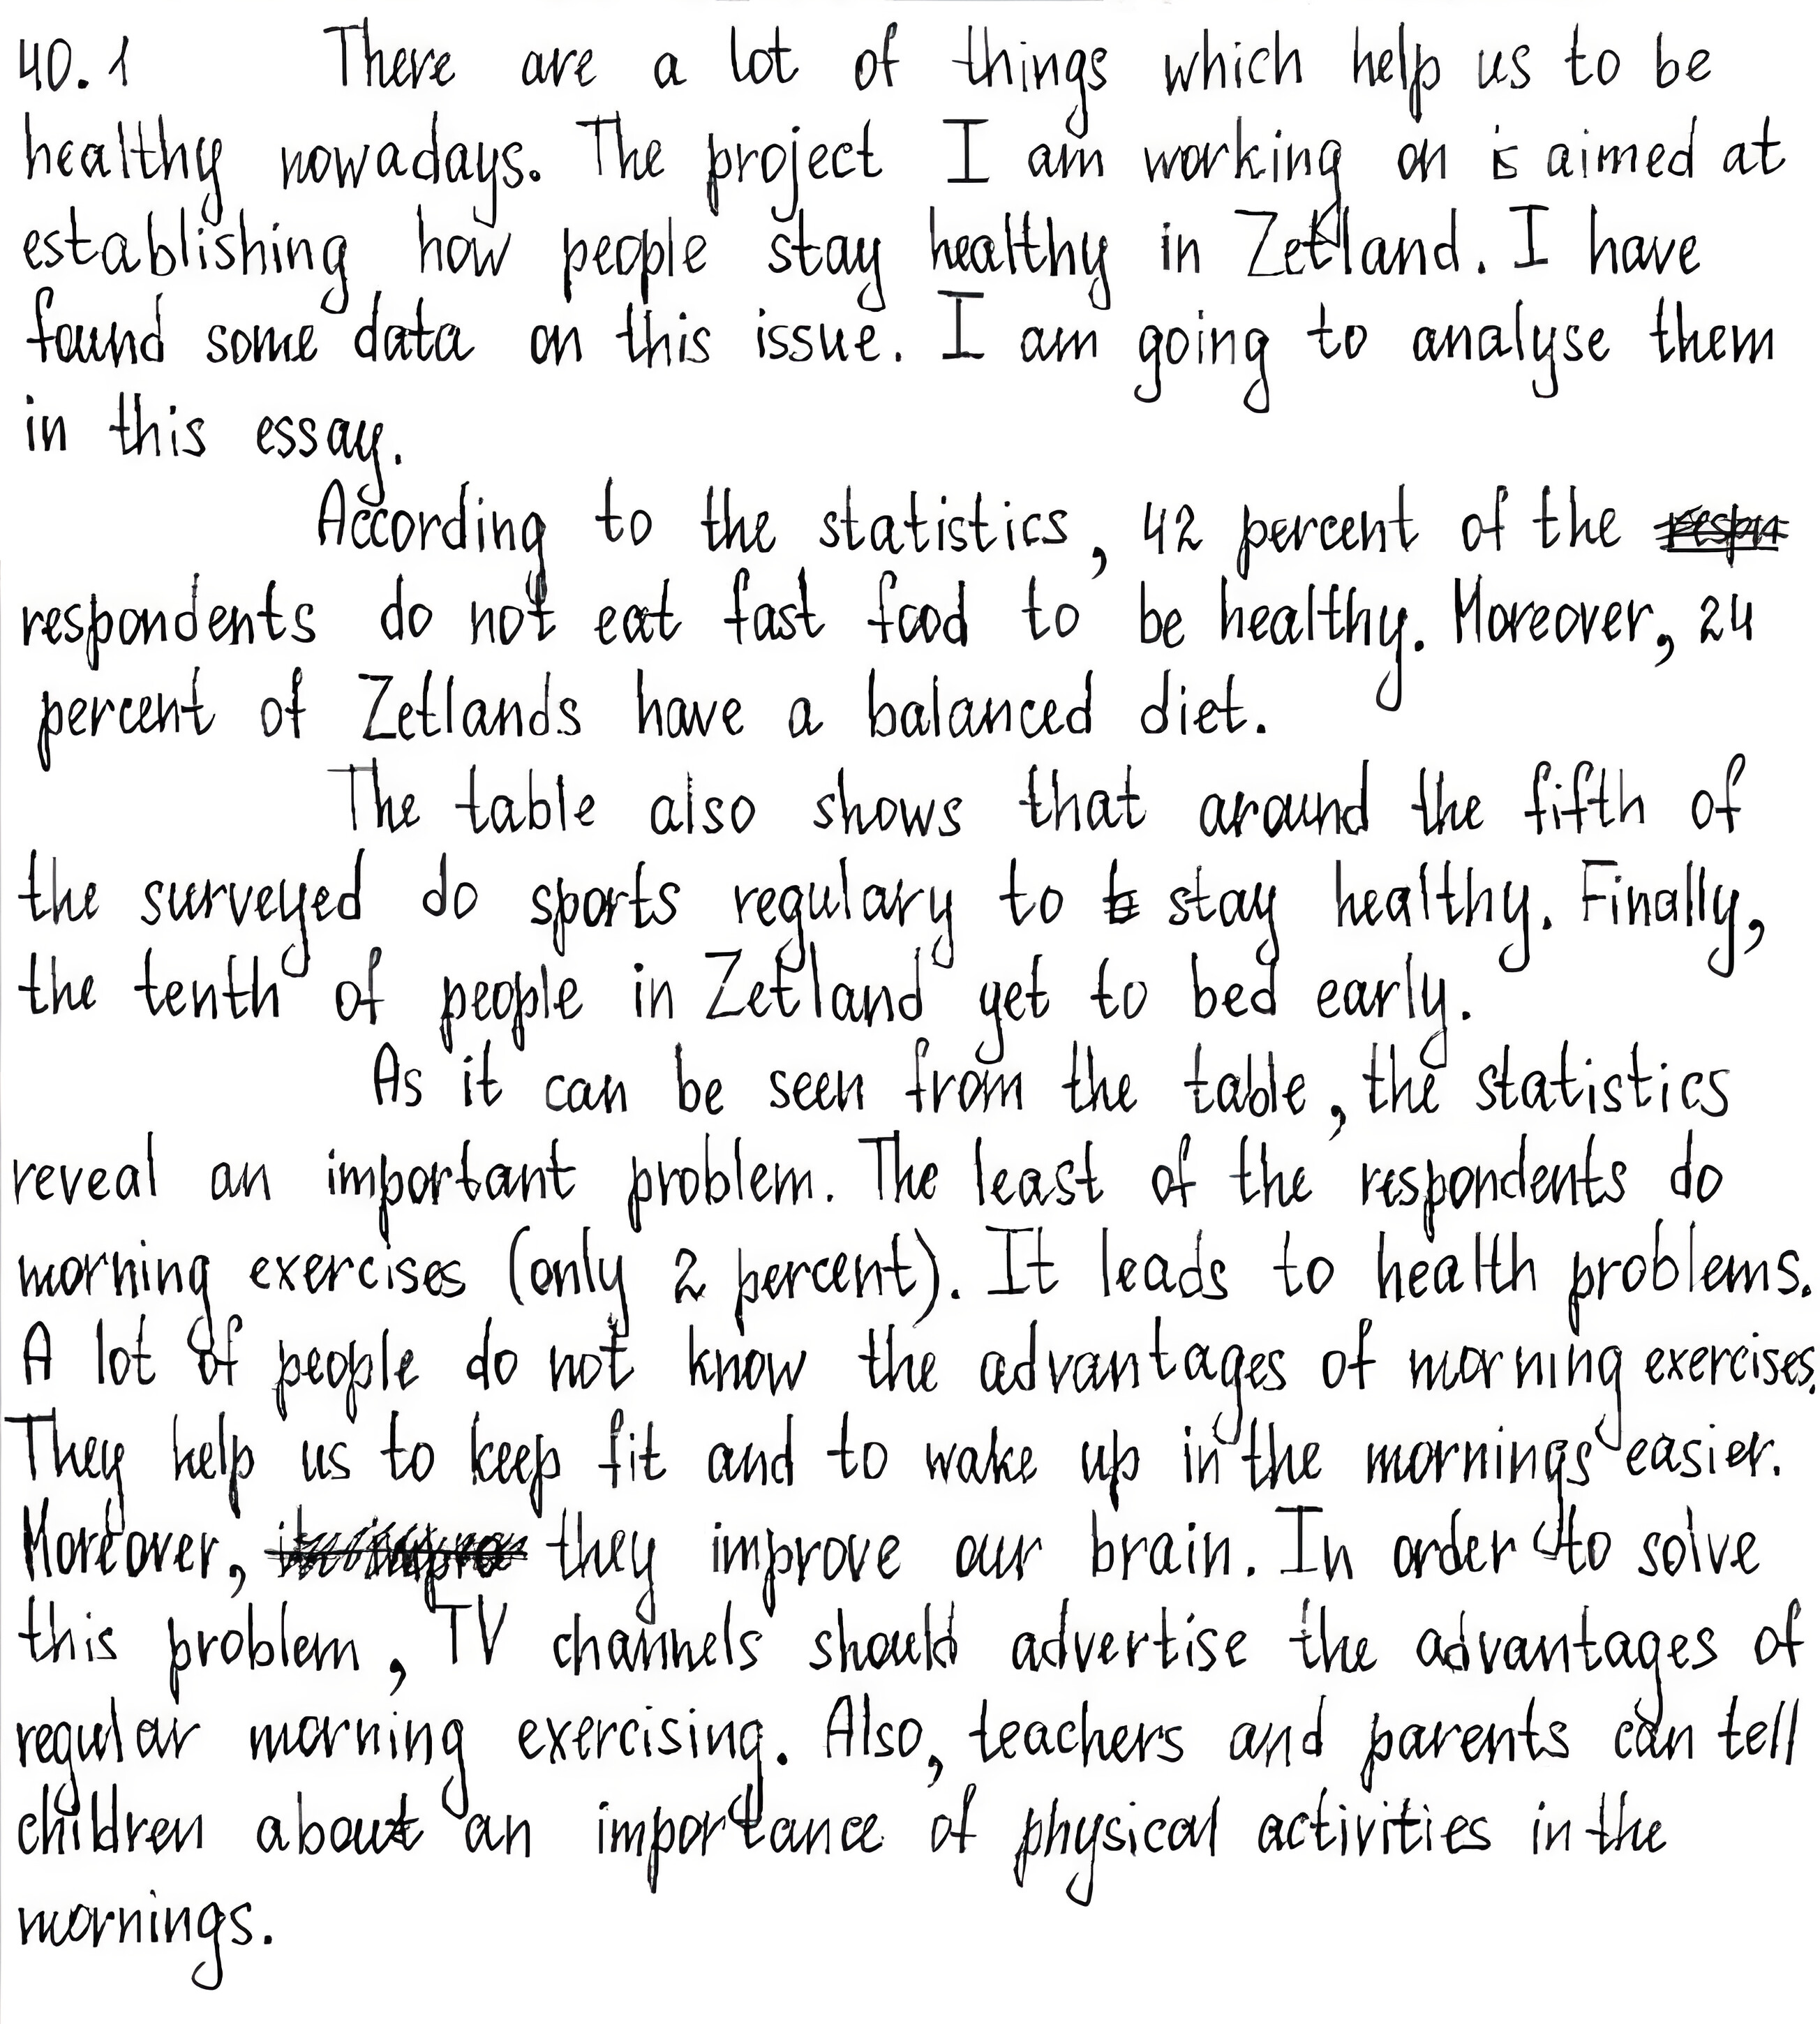 40.1 There are a lot of things which help us to be
healthy nowadays. The project I am working on is aimed at
establishing how people stay healthy in Zetland. I have
found some data on this issue. I am going to analyse them
in this essay.
According to the statistics, 42 percent of the
respondents do not eat fast food to be healthy. Moreover, 24
percent of Zetlands have a balanced diet.
The table also shows that around the fifth of
the surveyed do sports regulary to stay healthy. Finally,
the tenth of people in Zetland get to bed early.
As it can be seen from the table, the statistics
reveal an important problem. The least of the respondents do
morning exercises (only 2 percent). It leads to health problems.
A lot of people do not know the advantages of morning exercises.
They help us to keep fit and to wake up in the mornings easier.
Moreover, they improve our brain. In order to solve
this problem, TV channels should advertise the advantages of
regular morning exercising. Also, teachers and parents can tell
children about an importance of physical activities in the
mornings.